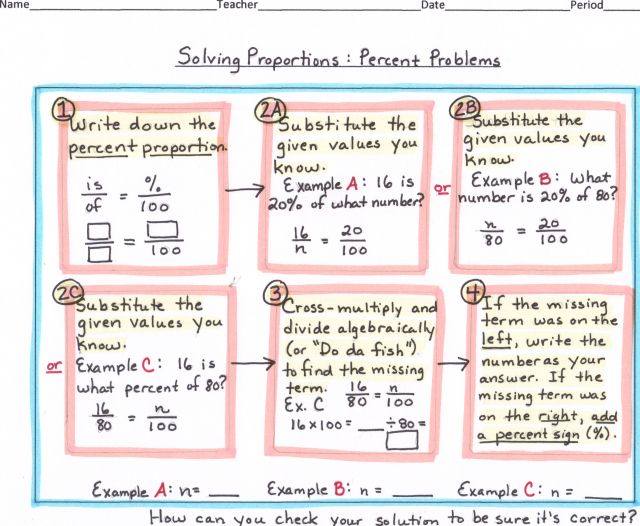 Name Teacher Date Period
Solving Proportions : Percent Problems
1
Write down the
percent proportion.
is/of = %/100
□/□ = □/100
2A
Substitute the
given values you
know.
Example A: 16 is
20% of what number?
16/n = 20/100
or
2B
Substitute the
given values you
know.
Example B: What
number is 20% of 80?
n/80 = 20/100
or
2C
Substitute the
given values you
know.
Example C: 16 is
what percent of 80?
16/80 = n/100
3
Cross-multiply and
divide algebraically
(or "Do da fish")
to find the missing
term. 16/80 = n/100
Ex. C
16 x 100 = ___ ÷ 80 =
□
4
If the missing
term was on the
left, write the
number as your
answer. If the
missing term was
on the right, add
a percent sign (%).
Example A: n= ___ Example B: n = ___ Example C: n = ___
How can you check your solution to be sure it's correct?